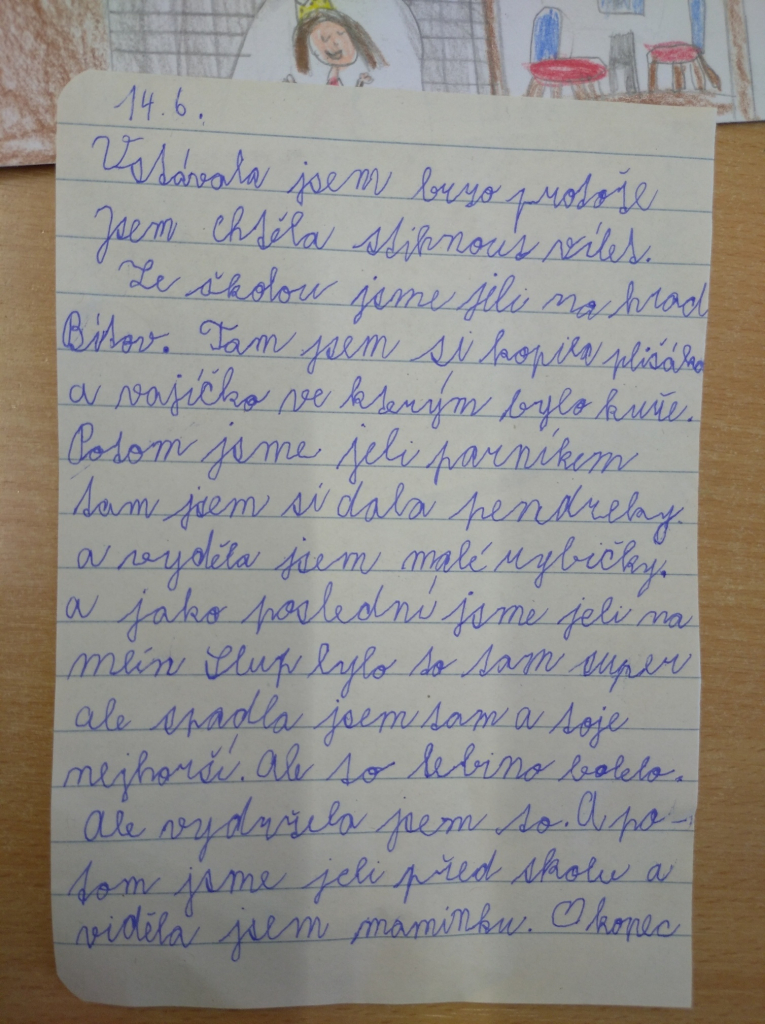 14.6.
Vstávala jsem brzo protože
Jsem chtěla stihnout vílet.
Ze školou jsme jeli na hrad
Bítov. Tam jsem si kopila plišáka
a vajíčko ve kterým bylo kuře.
Potom jsme jeli parníkem
tam jsem si dala pendreky.
a vyděla jsem malé rybičky.
a jako poslední jsme jeli na
mlín Slup bylo to tam super
ale spadla jsem tam a toje
nejhorší. Ale to lebino bolelo.
Ale vydržela jsem to. A po-
tom jsme jeli před školu a
viděla jsem maminku. ♡ konec